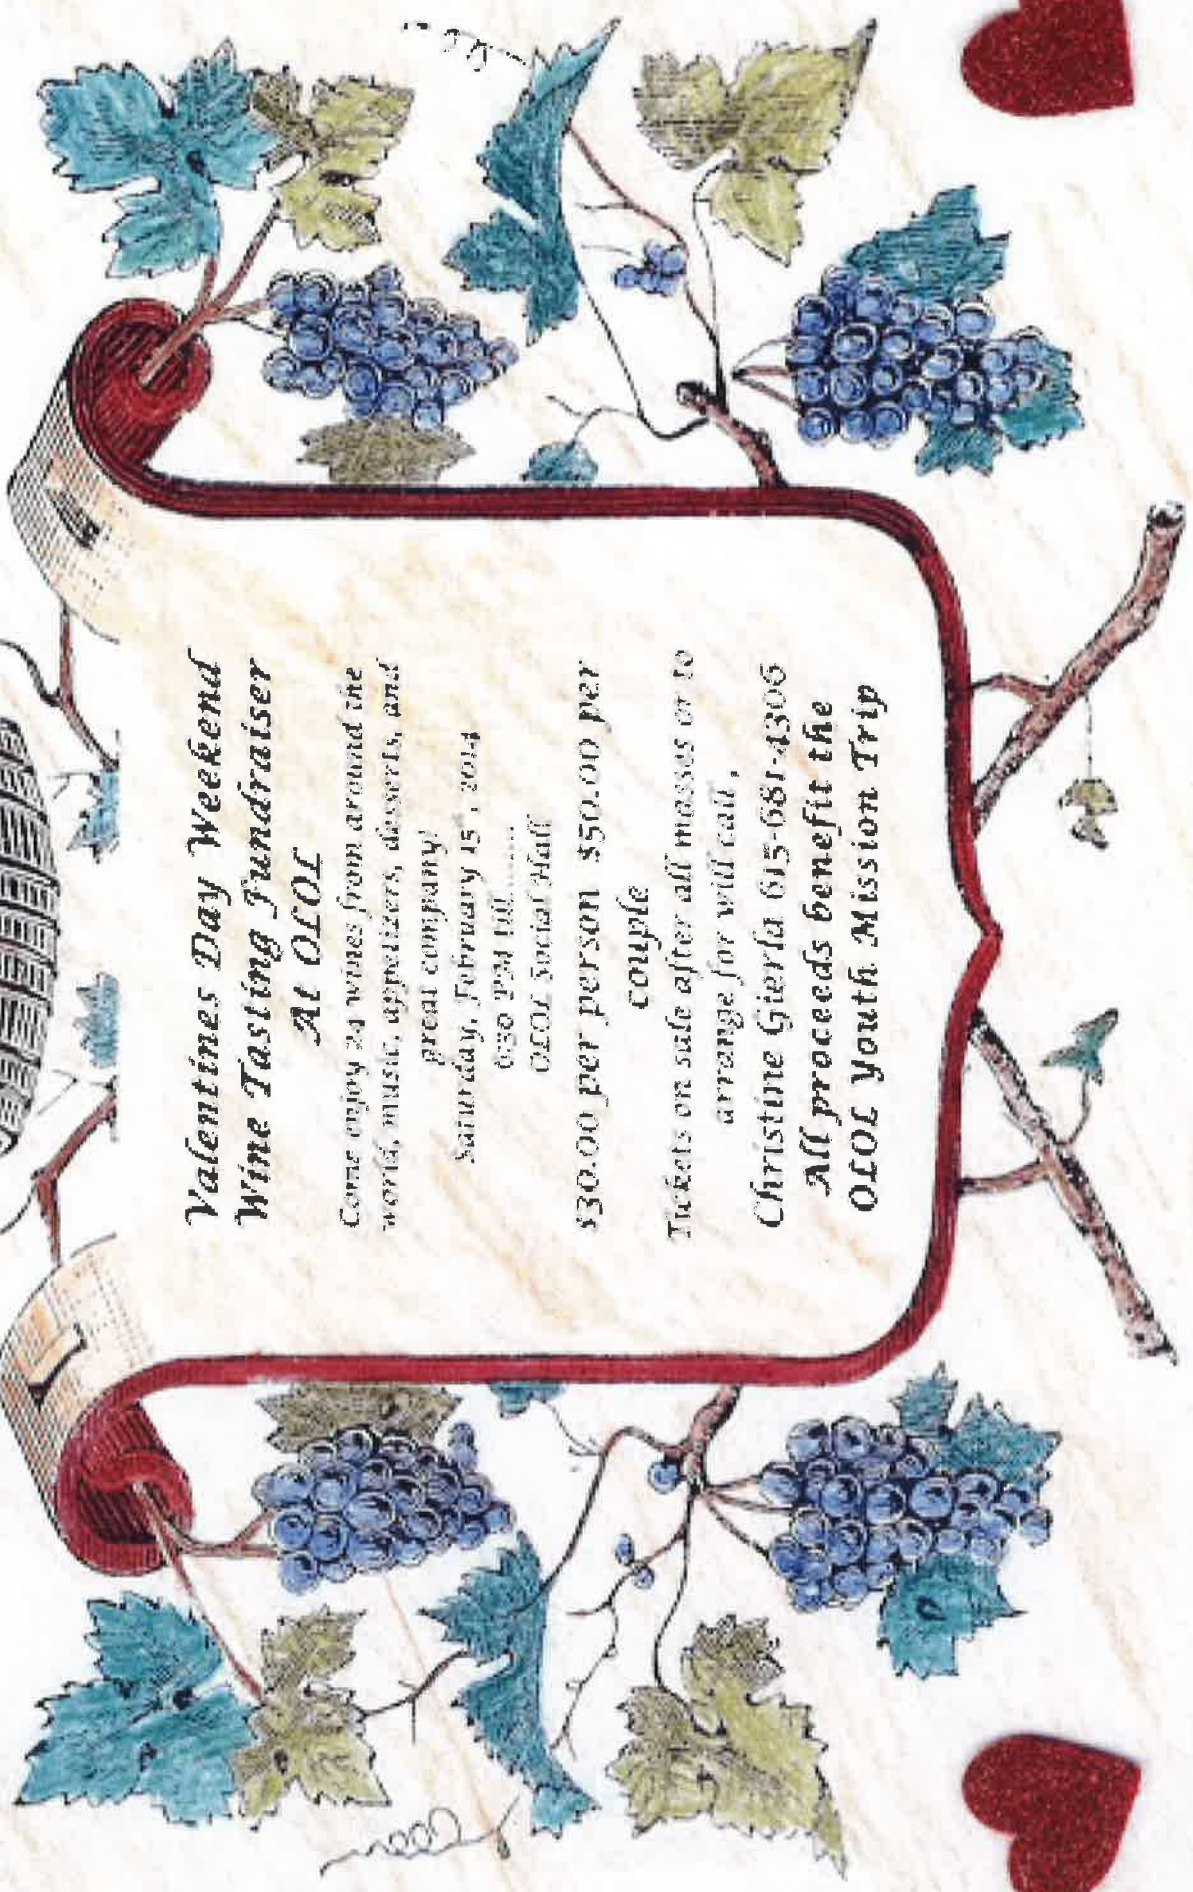 Valentines Day Weekend
Wine Tasting Fundraiser
At OLOL
Come enjoy 24 wines from around the
world, music, appetizers, desserts, and
great company!
Saturday, February 15, 2014
6:30 PM till........
OLOL Social Hall
$30.00 per person $50.00 per
couple
Tickets on sale after all masses or to
arrange for will call,
Christine Gierla 615-681-4306
All proceeds benefit the
OLOL Youth Mission Trip